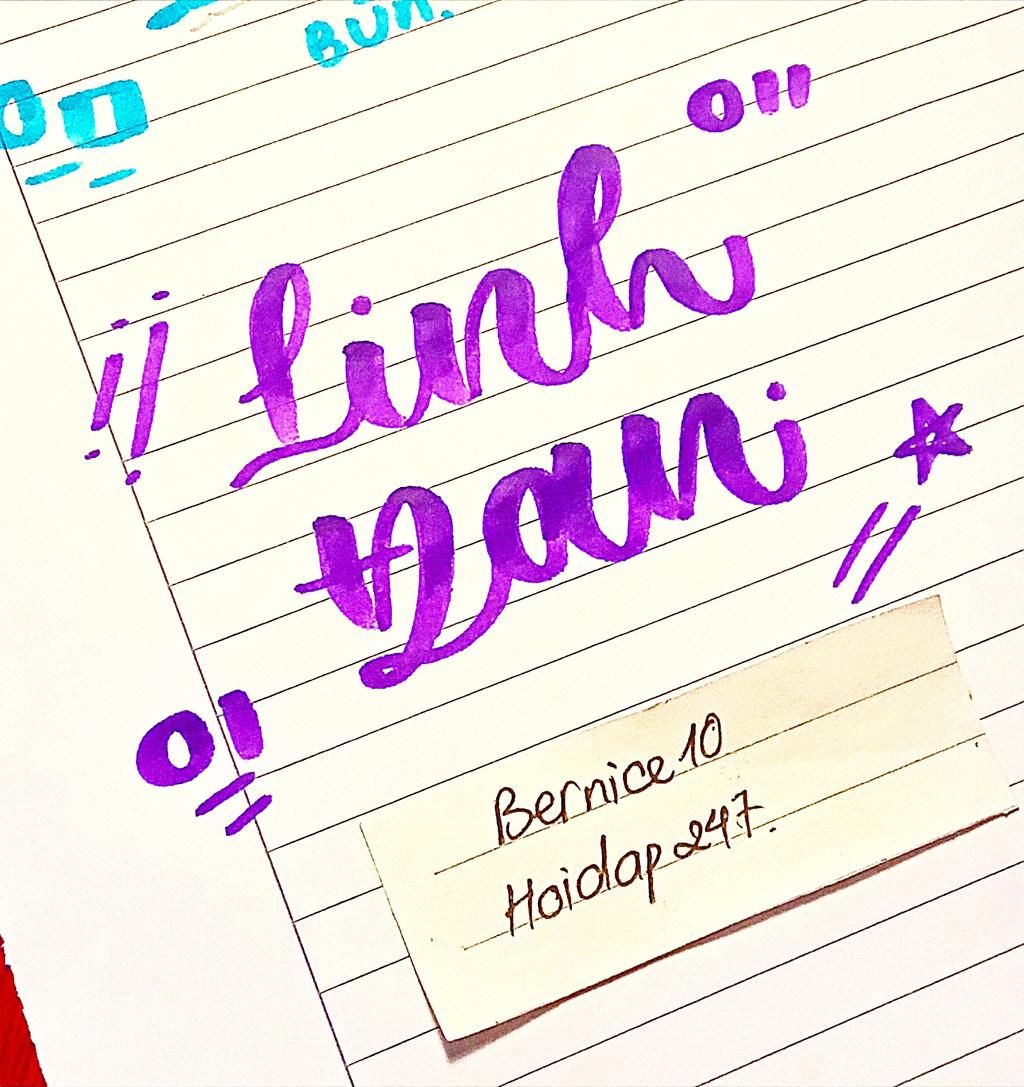 linh
Đan
Bernice 10
Hoidap247.